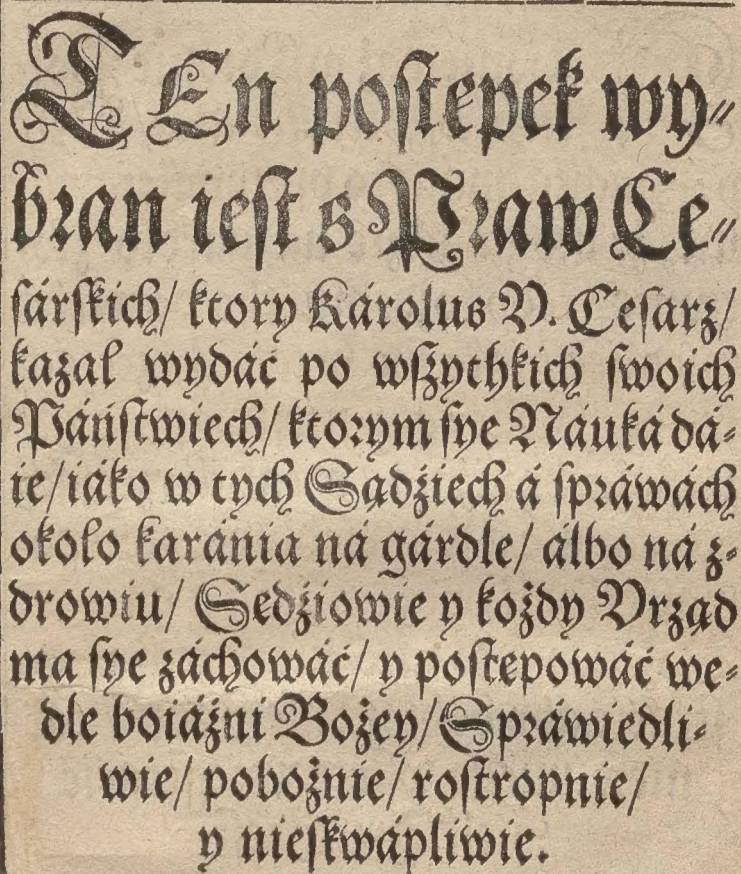 TEn postępek wy⸗
bran iest s Praw Ce⸗
sárskich/ ktory Károlus V. Cesarz/
kazał wydáć po wszythkich swoich
Páństwiech/ ktorym sye Náuká dá⸗
ie/ iáko w tych Sądźiech á spráwách
około karánia ná gárdle/ álbo ná z⸗
drowiu/ Sędźiowie y kożdy Vrząd
ma sye záchowáć/ y postępowáć we⸗
dle boiáźni Bożey/ Spráwiedli⸗
wie/ pobożnie/ rostropnie/
y nieskwápliwie.